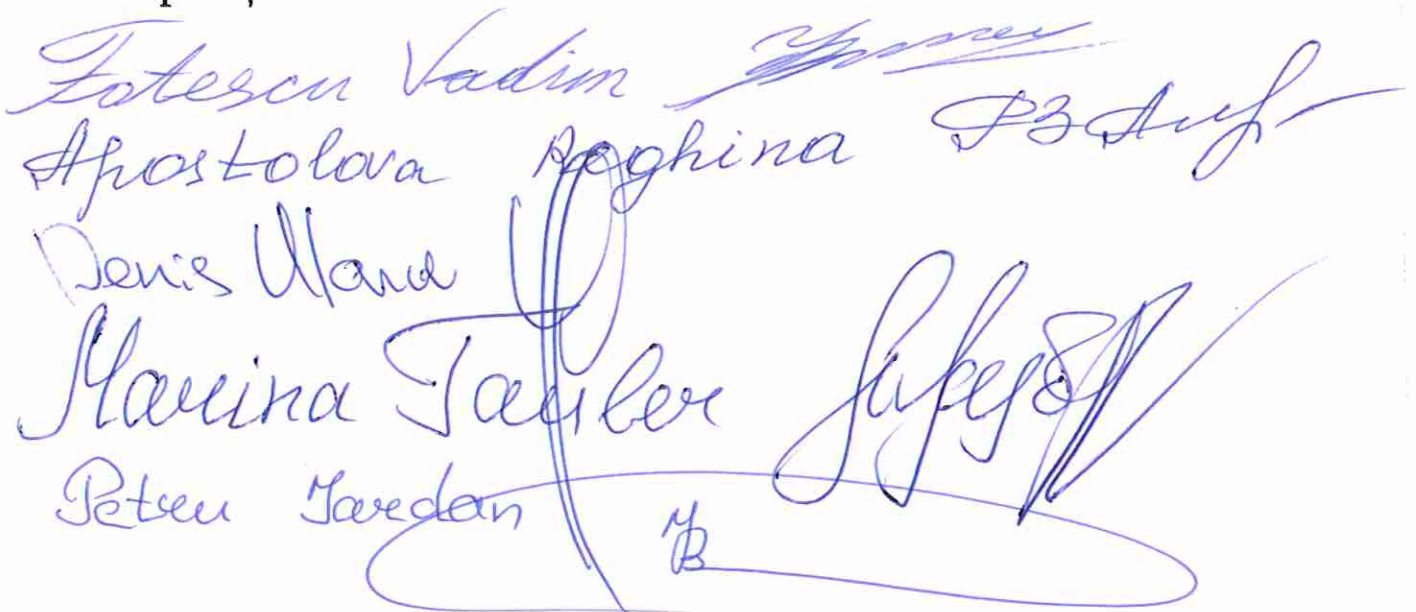 Fotescu Vadim
Apostolova Reghina
Denis Ulanov
Marina Tauber
Petru Jardan